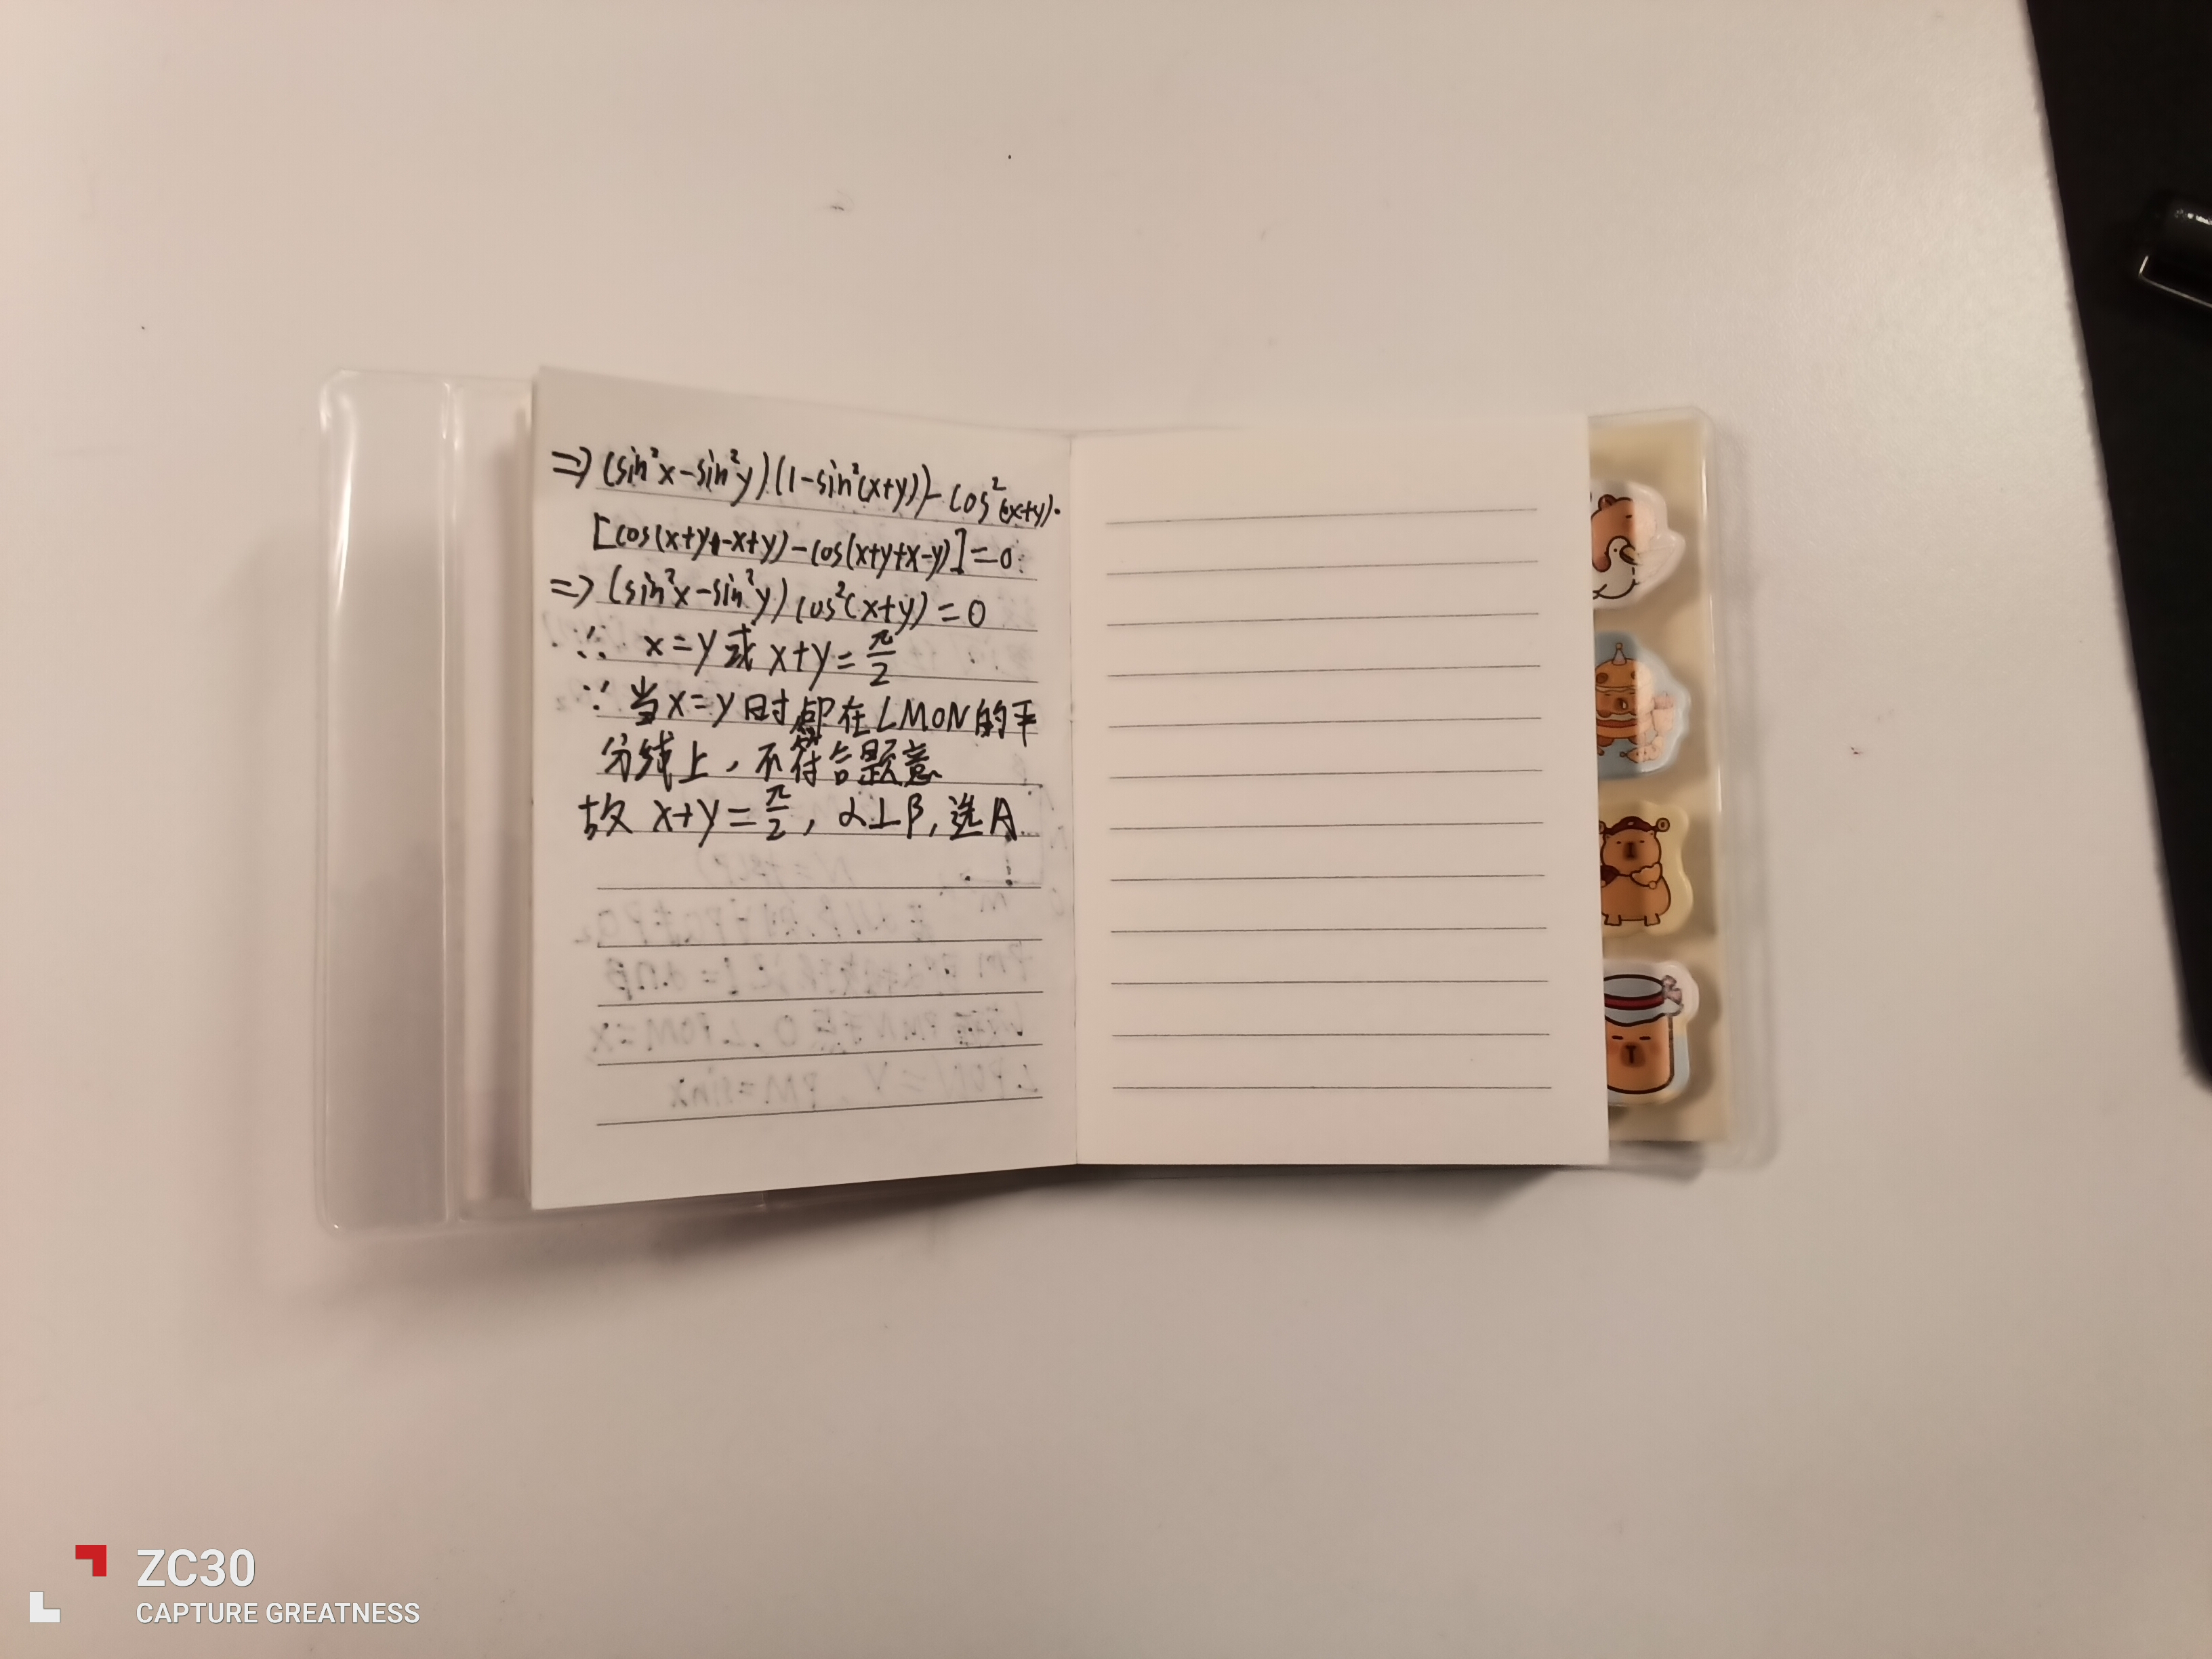 ⇒(sin²x-sin²y)(1-sin²(x+y))-cos²(x+y)·
[cos(x+y-x+y)-cos(x+y+x-y)]=0
⇒(sin²x-sin²y)cos²(x+y)=0
∴ x=y或x+y=π/2
∵ 当x=y时 即在∠MON的平
分线上，不符合题意
故 x+y=π/2，α⊥β，选A
ZC30
CAPTURE GREATNESS